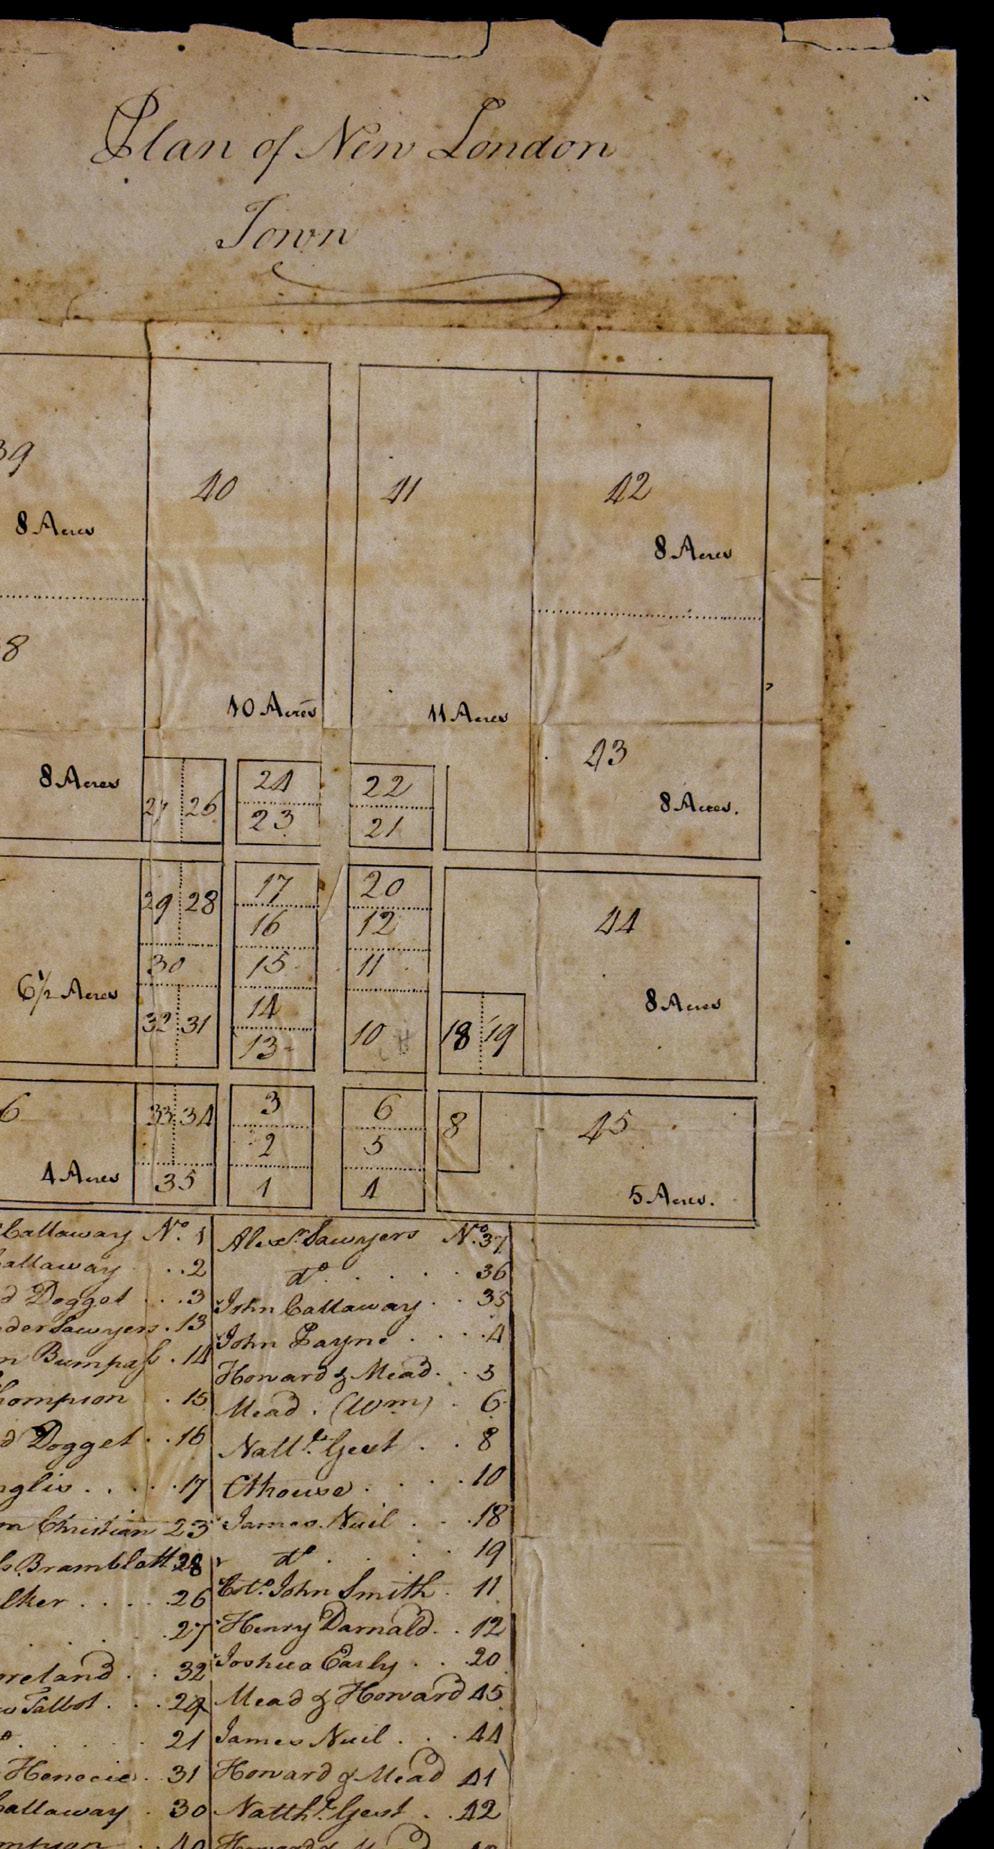 Plan of New London
Town
39
40
41
42
8 Acres
8 Acres
8
10 Acres
11 Acres
43
8 Acres
8 Acres.
27 26
24
23
22
21
29 28
17
20
44
16
12
30
15
11
6 1/2 Acres
8 Acres
32 31
14
13
10
18 19
6
33 34
3
6
8
45
2
5
4 Acres
35
1
4
5 Acres.
Callaway No. 1
allaway . . 2
d Dogget . . . 3
der Sawyers . 13
m Bumpass . 14
hompson . 15
d Dogget . . 16
nglis . . . . 17
m Christian 23
s Bramblett 28
lker . . . . 26
. . . . 27
oreland . . 32
Talbot . . . 29
. . . . 21
31
allaway . 30
40
Alexr. Sawyers No. 37
do. . . . . 36
John Callaway . . 35
John Payne . . . . 4
Howard & Mead . . 5
Mead . (Wm) . 6
Nathl. Gest . . 8
Cthouse . . . . 10
James Nuil . . . 18
do . . . . 19
Esto. John Smith . 11
Henry Darnald . . 12
Joshua Early . . . 20
Mead & Howard 45
James Nuil . . . 44
Howard & Mead 41
Natthl. Gest . . 42